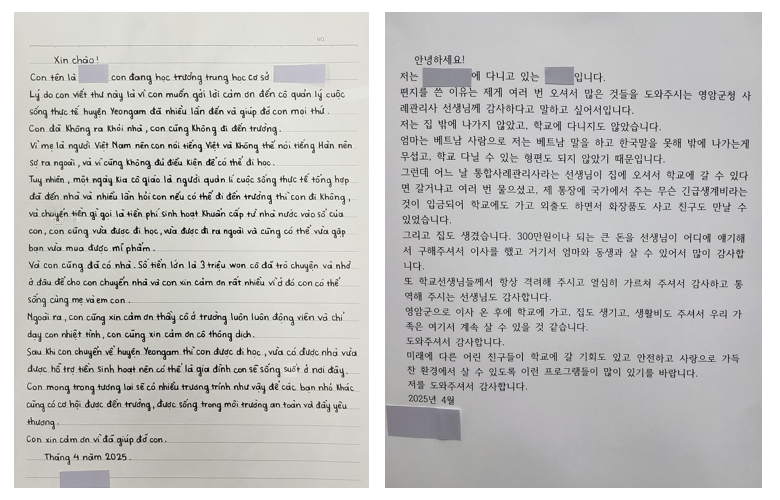 NO.
Xin chào!
Con tên là con đang học trưởng trung học cơ sở
Lý do con viết thư này là vì con muốn gởi lời cảm ơn đến cô quản lý cuộc
sống thực tế huyện Yeongam đã nhiều lần đến và giúp đỡ con mọi thứ.
Con đã không ra khỏi nhà, con cũng không đi đến trường.
Vì mẹ là người Việt Nam nên con nói tiếng Việt và không thể nói tiếng Hàn nên
sợ ra ngoài, và vì cũng không đủ điều kiện để có thể đi học.
Tuy nhiên, một ngày kia cô giáo là người quản lí cuộc sống thực tế tổng hợp
đã đến nhà và nhiều lần hỏi con nếu có thể đi đến trường thì con đi không,
và chuyển tiền gì gọi là tiền phí sinh hoạt khuẩn cấp từ nhà nước vào sổ của
con, con cũng vừa được đi học, vừa được đi ra ngoài và cũng có thể vừa gặp
bạn vừa mua được mĩ phẩm.
Và con cũng đã có nhà. Số tiền lớn là 3 triệu won cô đã trò chuyện và nhờ
ở đâu để cho con chuyển nhà và con xin cảm ơn rất nhiều vì ở đó con có thể
sống cùng mẹ và em con.
Ngoài ra, con cũng xin cảm ơn thầy cô ở trường luôn luôn động viên và chỉ
dạy con nhiệt tình, con cũng xin cảm ơn cô thông dịch.
Sau khi con chuyển về huyện Yeongam thì con được đi học, vừa có được nhà vừa
được hỗ trợ tiền sinh hoạt nên có thể là gia đình con sẽ sống suốt ở nơi đây.
Con mong trong tương lai sẽ có nhiều trương trình như vậy để các bạn nhỏ khác
cũng có cơ hội được đến trường, được sống trong môi trường an toàn và đầy yêu
thương.
Con xin cảm ơn vì đã giúp đỡ con.
Tháng 4 năm 2025.
안녕하세요!
저는 에 다니고 있는 입니다.
편지를 쓴 이유는 제게 여러 번 오셔서 많은 것들을 도와주시는 영암군청 사
례관리사 선생님께 감사하다고 말하고 싶어서입니다.
저는 집 밖에 나가지 않았고, 학교에 다니지도 않았습니다.
엄마는 베트남 사람으로 저는 베트남 말을 하고 한국말을 못해 밖에 나가는게
무섭고, 학교 다닐 수 있는 형편도 되지 않았기 때문입니다.
그런데 어느 날 통합사례관리사라는 선생님이 집에 오셔서 학교에 갈 수 있다
면 갈거냐고 여러 번 물으셨고, 제 통장에 국가에서 주는 무슨 긴급생계비라는
것이 입금되어 학교에도 가고 외출도 하면서 화장품도 사고 친구도 만날 수
있었습니다.
그리고 집도 생겼습니다. 300만원이나 되는 큰 돈을 선생님이 어디에 얘기해
서 구해주셔서 이사를 했고 거기서 엄마와 동생과 살 수 있어서 많이 감사합
니다.
또 학교선생님들께서 항상 격려해 주시고 열심히 가르쳐 주셔서 감사하고 통
역해 주시는 선생님도 감사합니다.
영암군으로 이사 온 후에 학교에 가고, 집도 생기고, 생활비도 주셔서 우리 가
족은 여기서 계속 살 수 있을 것 같습니다.
도와주셔서 감사합니다.
미래에 다른 어린 친구들이 학교에 갈 기회도 있고 안전하고 사랑으로 가득
찬 환경에서 살 수 있도록 이런 프로그램들이 많이 있기를 바랍니다.
저를 도와주셔서 감사합니다.
2025년 4월